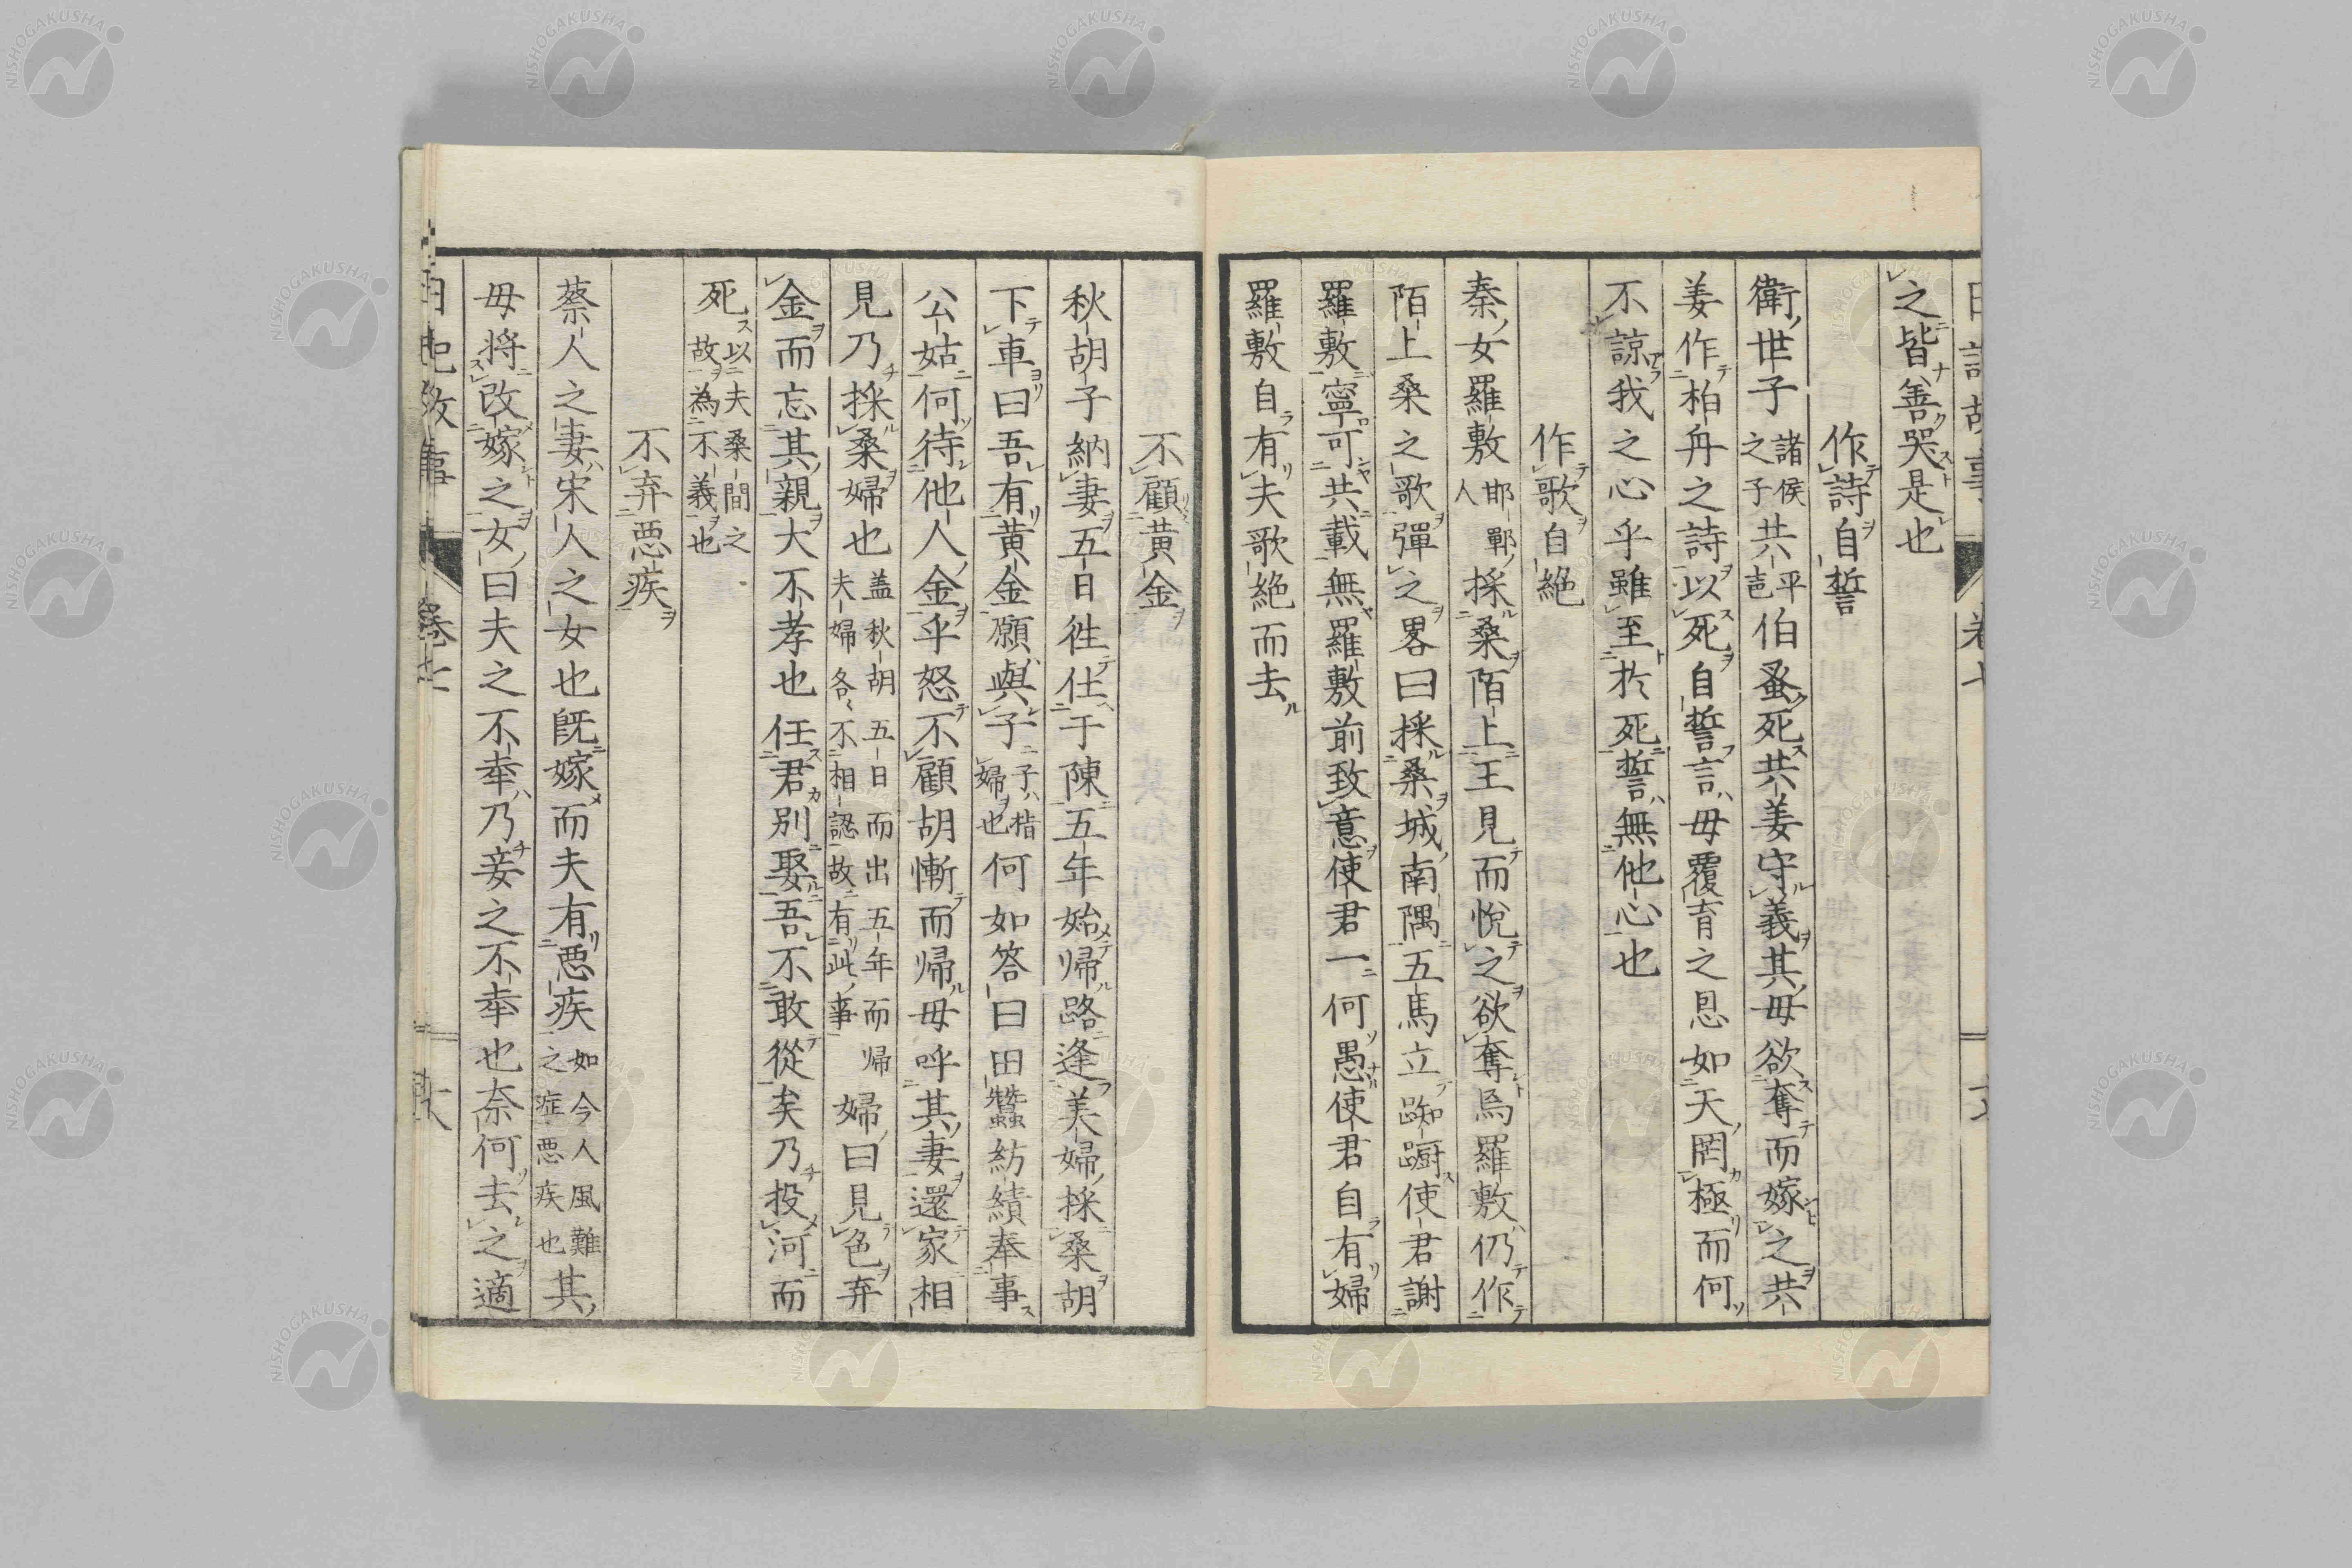 之皆善哭是也
作詩自誓
衛世子諸侯之子共平声伯蚤死共姜守義其毋欲奪而嫁之共
姜作柏舟之詩以死自誓言毋覆育之恩如天罔極而何
不諒我之心乎雖至於死誓無他心也
作歌自絶
秦女羅敷邯鄲人採桑陌上王見而悅之欲奪焉羅敷仍作
陌上桑之歌彈之畧曰採桑城南隅五馬立踟蹰使君謝
羅敷寧可共載無羅敷前致意使君一何愚使君自有婦
羅敷自有夫歌絶而去
不顧黃金
秋胡子納妻五日徃仕于陳五年始帰路逢美婦採桑胡
下車曰吾有黃金願與子子指婦也何如答曰田蠶紡績奉事
公姑何待他人金乎怒不顧胡慚而帰毋呼其妻還家相
見乃採桑婦也盖秋胡五日而出五年而帰夫婦各々不相認故有此事婦曰見色弃
金而忘其親大不孝也任君別娶吾不敢從矣乃投河而
死以夫桑間之故為不義也
不弃悪疾
蔡人之妻宋人之女也既嫁而夫有悪疾如今人風難之症悪疾也其
毋将改嫁之女曰夫之不幸乃妾之不幸也奈何去之適
日記故事 卷七 六